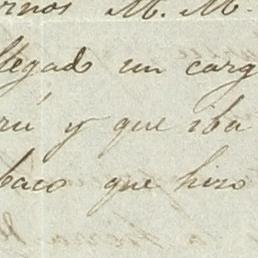 rnos M. M.
llegado un carg
rú y que iba
baco que hizo